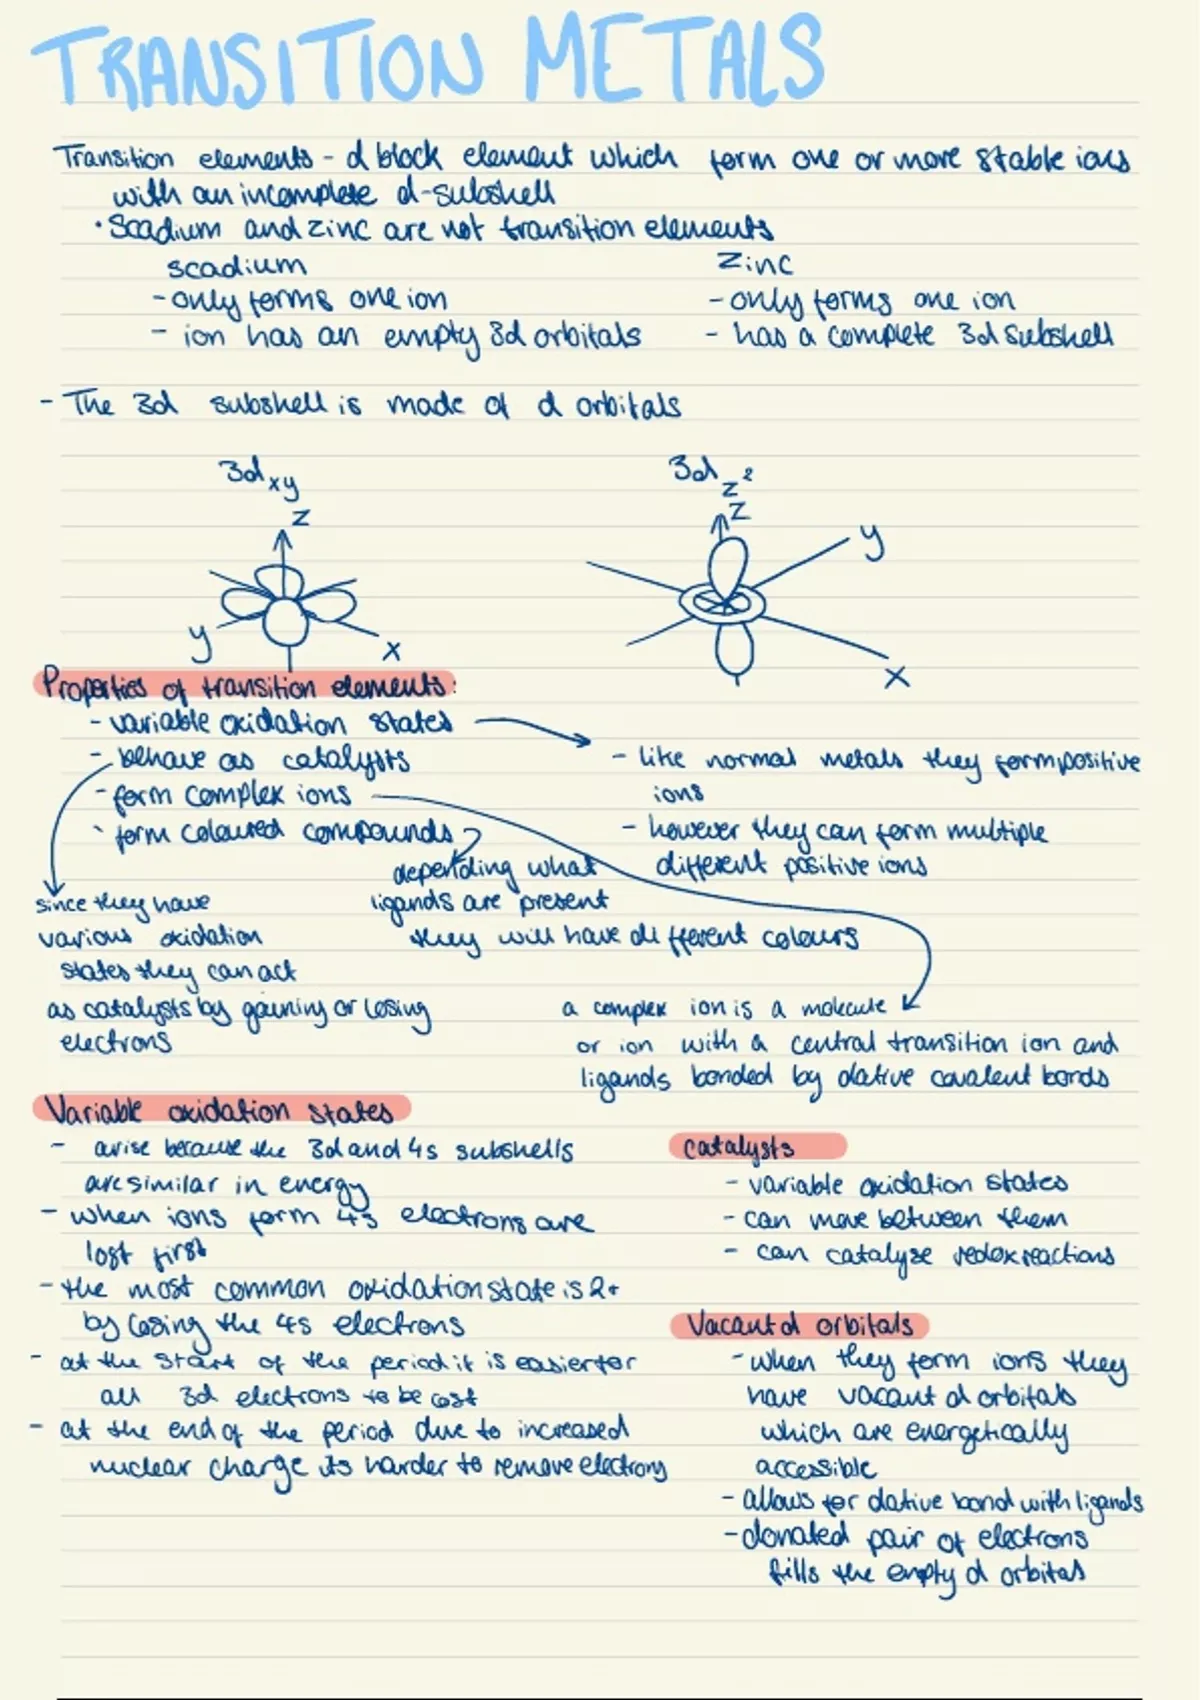 TRANSITION METALS
Transition elements - d block element which form one or more stable ions
with an incomplete d-subshell
• Scadium and zinc are not transition elements
scadium
- only forms one ion
- ion has an empty 3d orbitals
Zinc
- only forms one ion
- has a complete 3d subshell
- The 3d subshell is made of d orbitals
3d xy
z
y
x
3d z²
z
y
x
Properties of transition elements:
- variable oxidation states
- behave as catalysts
- form complex ions
- form coloured compounds
- like normal metals they form positive
ions
- however they can form multiple
different positive ions
depending what
ligands are present
they will have different colours
since they have
various oxidation
states they can act
as catalysts by gaining or losing
electrons
a complex ion is a molecule
or ion with a central transition ion and
ligands bonded by dative covalent bonds
Variable oxidation states
- arise because the 3d and 4s subshells
are similar in energy
- when ions form 4s electrons are
lost first
- the most common oxidation state is 2+
by losing the 4s electrons
- at the start of the period it is easier for
all 3d electrons to be lost
- at the end of the period due to increased
nuclear charge its harder to remove electrons
catalysts
- variable oxidation states
- can move between them
- can catalyse redox reactions
Vacant d orbitals
- when they form ions they
have vacant d orbitals
which are energetically
accessible
- allows for dative bond with ligands
- donated pair of electrons
fills the empty d orbital